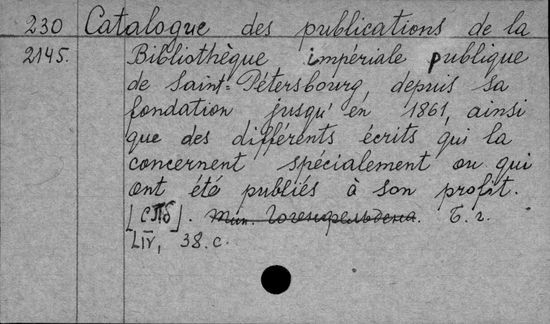 230 Catalogue des publications de la
2145. Bibliothèque impériale publique
de Saint-Pétersbourg, depuis sa
fondation jusqu'en 1861, ainsi
que des différents écrits qui la
concernent spécialement ou qui
ont été publiés à son profit.
[СПб]. тип. Гогенфельдена. Б. г.
LIV, 38. c.